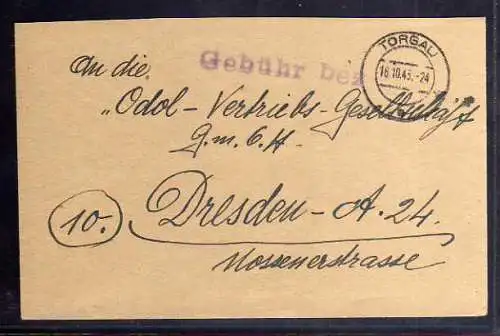 TORGAU
16.10.45.-24
Gebühr bez
An die
"Odol-Vertriebs-Gesellschaft
G.m.b.H.
10.
Dresden-A.24.
Nossenerstrasse